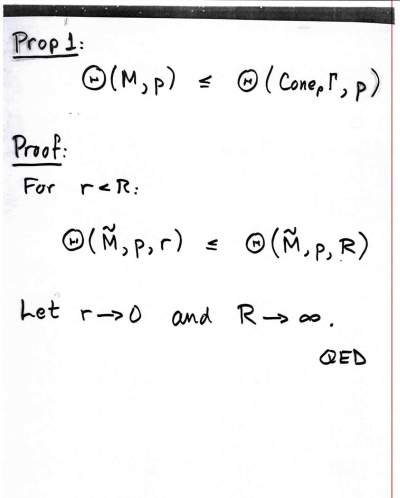 Prop 1:
Θ(M, p) ≤ Θ(Cone_p Γ, p)
Proof:
For r < R:
Θ(M̃, p, r) ≤ Θ(M̃, p, R)
Let r → 0 and R → ∞.
QED